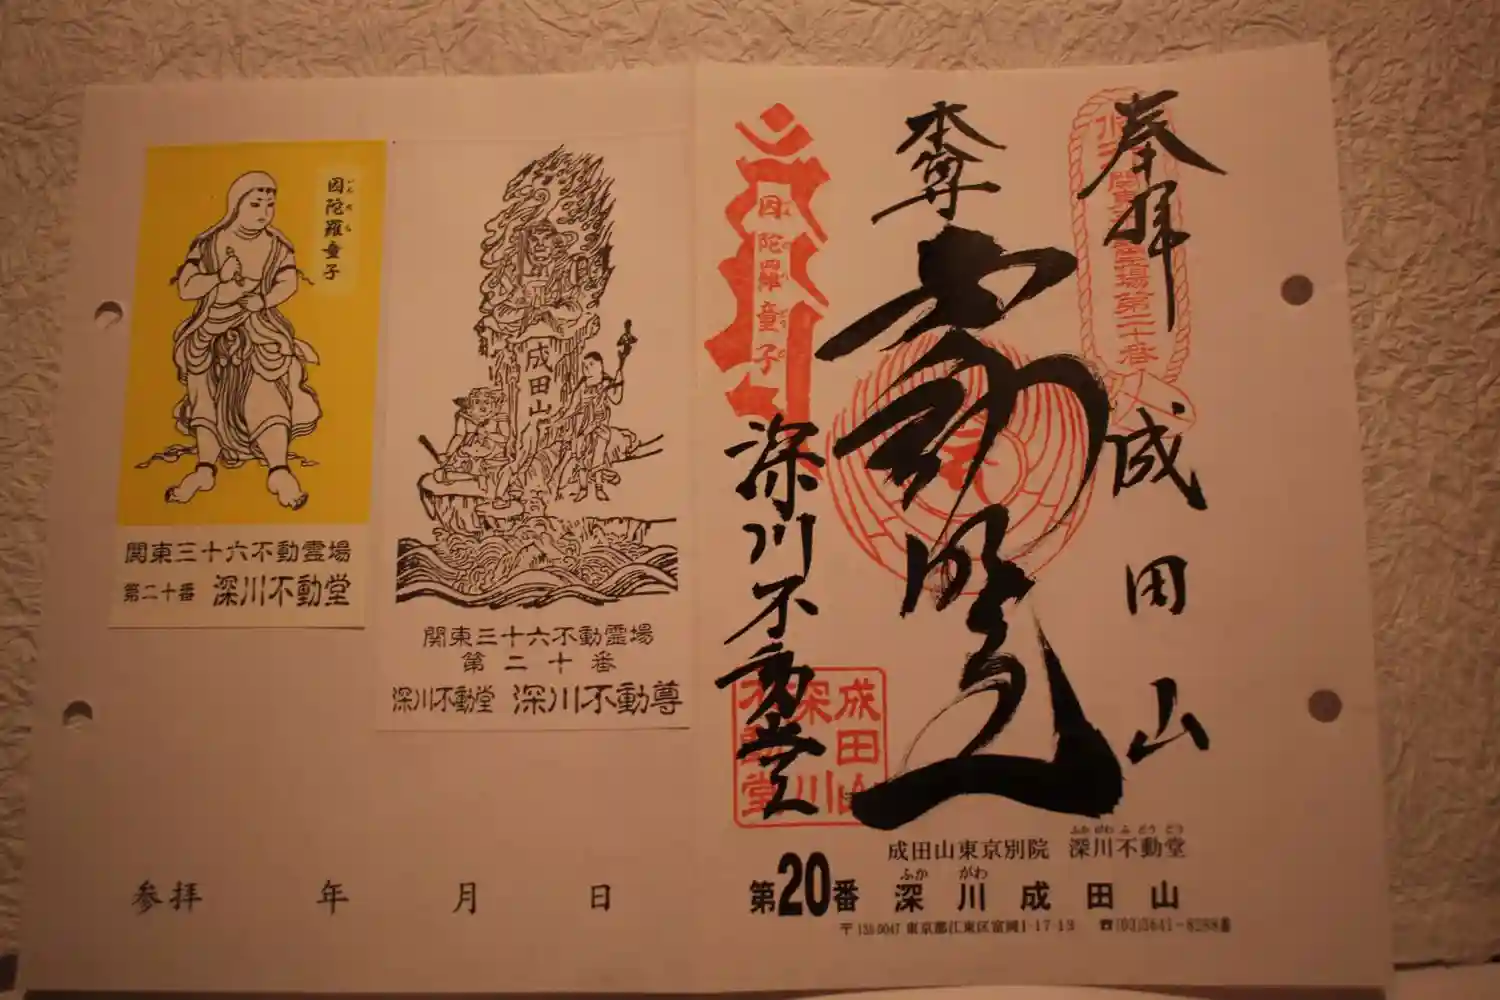 因陀羅童子
いんだら
関東三十六不動霊場
第二十番 深川不動堂
成田山
関東三十六不動霊場
第二十番
深川不動堂 深川不動尊
参拝 年 月 日
奉拝
関東三十六不動霊場第二十番
成田山
本尊
因陀羅童子
深川不動堂
成田山
深川
不動堂
ふかがわふどうどう
成田山東京別院 深川不動堂
ふか がわ
第20番 深川成田山
〒135-0047 東京都江東区富岡1-17-13 ☎(03)3641-8288番